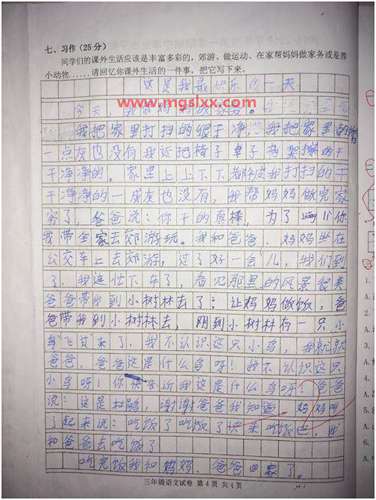 七、习作（25分）
同学们的课外生活应该是丰富多彩的，郊游、做运动、在家帮妈妈做家务或是养
小动物……请回忆你课外生活的一件事，把它写下来。
这是我最 的一天
www.mgslxx.com
今天，
我把家里打扫的很干净，我把家里的
一点灰也没有我还把椅子桌子我 擦的干
干净净的，家里上上下下都 我打扫的干
干净净的一点灰也没有，我帮妈妈做完家
务了，爸爸说：你干的真棒，为了 你
我带全家去郊游玩。我和爸爸，妈妈坐在
公交车上去郊游，过了好一会儿，我们到
了，我连忙下车了，看见那里的风景
爸爸带 到小树林去了；让妈妈做饭，爸
爸带我到小树林去，刚到小树林有一只小
鸟飞过来了，我不认识这只小鸟，我就
爸爸，爸爸这是什么鸟呀！我不认识这只
小鸟呀！你 告诉我这是什么鸟呀，爸爸
说：这是 ，谢谢爸爸我知道，妈妈叫
了起来说：吃饭了吃饭了快来吃饭 ，我
和爸爸去吃饭了
吃完饭我和妈妈，爸爸回家了。
三年级语文试卷 第4页 共4页